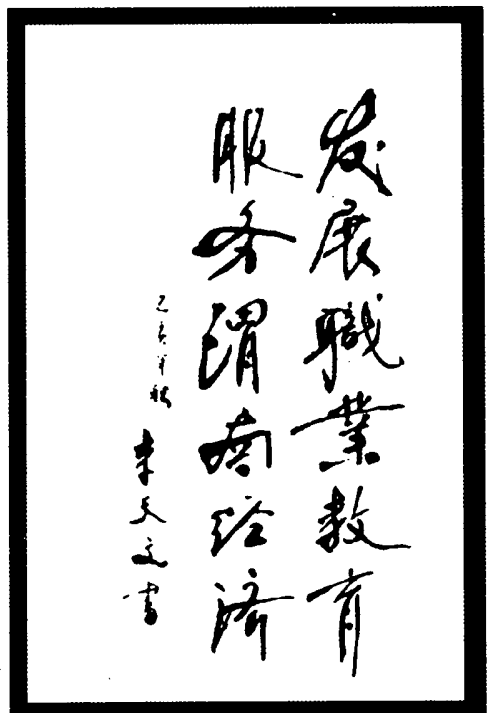 发展職業教育
服务渭南经济
年秋
天文書